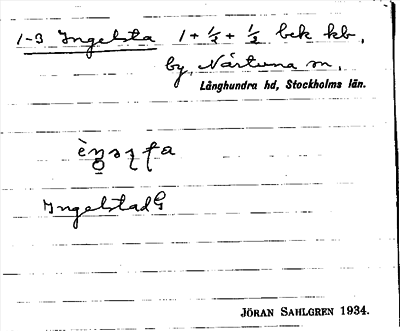 1-3 Ingelsta 1 + ½ + ½ bek kb,
by, Närtuna sn,
Långhundra hd, Stockholms län.
Ingelstad G
JÖRAN SAHLGREN 1934.